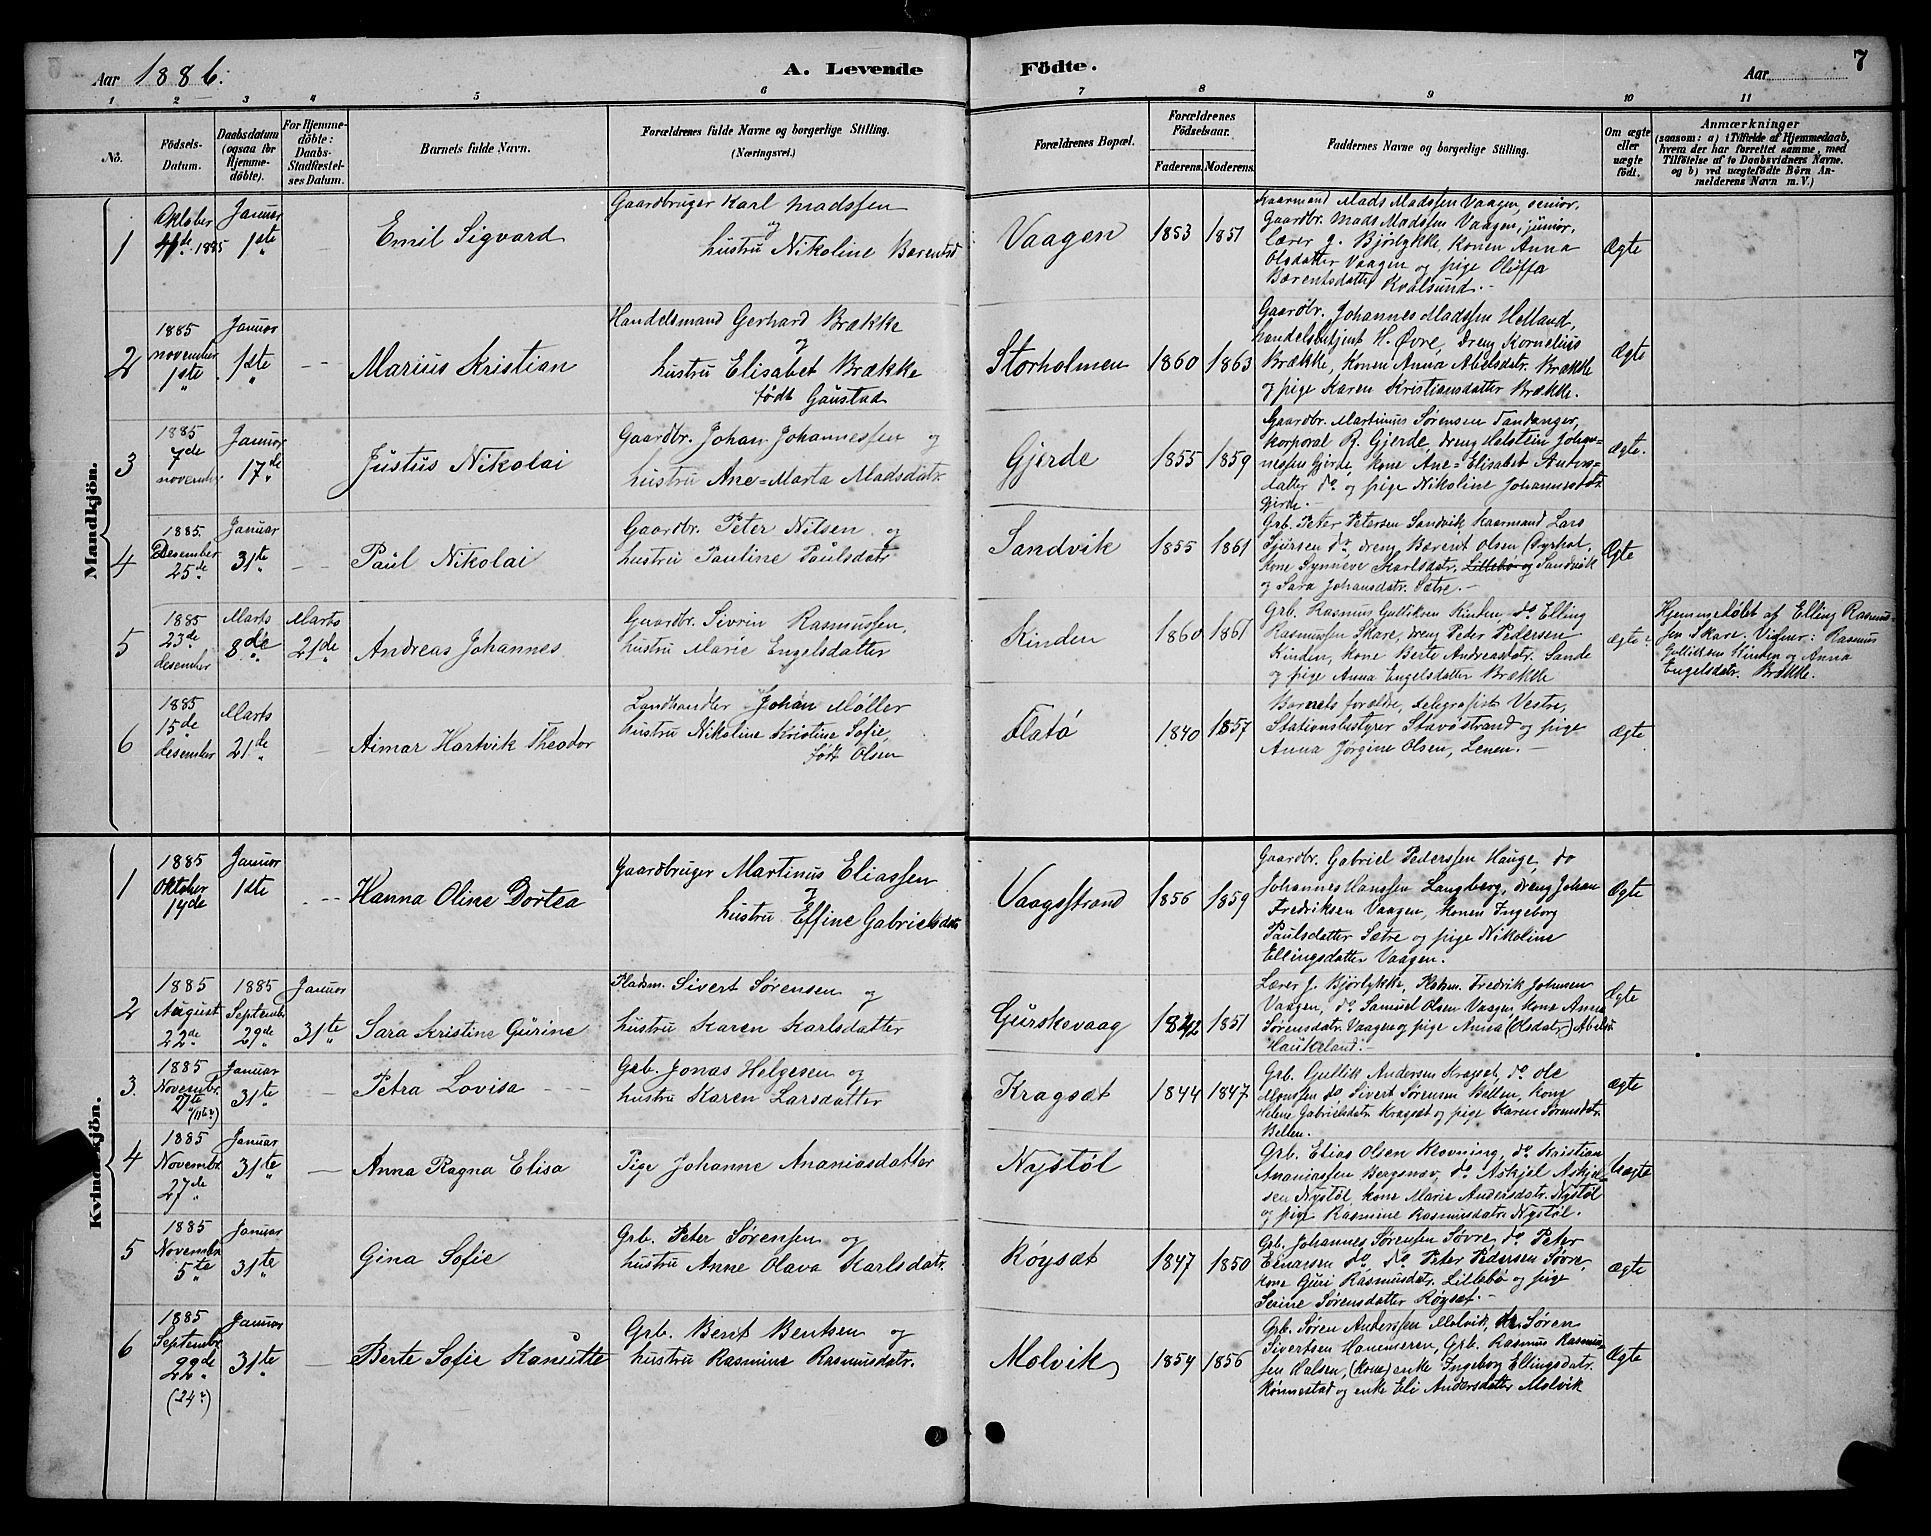 Aar 1886. A. Levende Födte. Aar 7
1 2 3 4 5 6 7 8 9 10 11
No.
Födsels-
Datum.
Daabsdatum
(ogsaa for
Hjemme-
döbte).
For Hjemme-
döbte:
Daabs-
Stadfæstel-
ses Datum.
Barnets fulde Navn.
Forældrenes fulde Navne og borgerlige Stilling.
(Næringsvei.)
Forældrenes Bopæl.
Forældrenes
Födselsaar.
Faderens. Moderens.
Faddernes Navne og borgerlige Stilling.
Om ægte
eller
uægte
födt.
Anmærkninger
(saasom: a) i Tilfælde af Hjemmedaab,
hvem der har forrettet samme, med
Tilföielse af to Daabsvidners Navne.
og b) ved uægtefödte Börn An-
melderens Navn m. V.)
Mandkjön.
1
Oktober
1885
Januar
1ste
Emil Sigvard
Gaardbruger Karl Madssen
og
hustru Nikoline Barentsd
Vaagen
1853 1851
Kaarmand Mads Madssen Vaagen, senior,
Gaardbr. Mads Madssen Vaagen, junior,
Lærer J. Bjørlykke, Konen Anna
Olsdatter Vaagen og pige Oluffa
Bærentsdatter Kvalsund.-
Ægte
2
1885
november
1ste
Januar
1ste
Marius Kristian
Handelsmand Gerhard Brække
og
hustru Elisabet Brække
født Gaustad
Storholmen
1860 1863
Gaardbr. Johannes Madssen Holland,
handelsbetjent H. Øvre, dreng Kornelius
Brække, Konen Anna Abelsdatr. Brække
og pige Karen Kristiansdatter Brække.
Ægte
3
1885
7de
november
Januar
17de
Justus Nikolai
Gaardbr. Johan Johannessen og
hustru Ane=Marta Madsdatr.
Gjerde
1855 1859
Gaardbr. Martinus Sørensen Tandanger,
Korporal R. Gjerde, dreng Holstein Johan-
nessen Gjerde, kone Ane=Elisabet Antons=
datter do og pige Nikoline Johannesdatr.
Gjerde.-
Ægte.
4
1885.
Desember
25de
Januar
31te
Paul Nikolai
Gaardbr. Peter Nilsen og
hustru Pauline Paulsdatr
Sandvik
1855 1861
Grb. Peter Petersen Sandvik, Kaarmand Lars
Sjursen do, dreng Bærent Olsen Dyrhol,
Kone Synneve Karlsdatr. Lillebø og Sandvik
og Sara Johansdatr. Sætre.-
Ægte
5
1885
23de
desember
Marts
8de
Marts
21de
Andreas Johannes
Gaardbr. Sivrin Rasmussen,
hustru Marie Engelsdatter
Kinden
1860 1861
Grb. Rasmus Gulliksen Kinden do Elling
Rasmussen Skare, dreng Peder Pedersen
Kinden, kone Berte Andreasdatr. Sande
og pige Anna Engelsdatter Brække
ægte
Hjemmedøbt af Elling Rasmus-
sen Skare. Vidner: Rasmus
Gulliksen Kinden og Anna
Engelsdatr. Brække.
6
1885
15de
desember
Marts
21de
Aimar Hartvik Theodor
Landhandler Johan Møller
hustru Nikoline Kristine Sofie,
født Olsen
Flatø
1840 1857
Barnets forældre, telegrafist Vestre,
Stationsbestyrer Stavøstrand og pige
Anna Jørgine Olsen, Lenen.-
ægte
Kvindekjön.
1
1885
Oktober
14de
Januar
1ste
Hanna Oline Dortea
Gaardbruger Martinus Eliassen
og
hustru Effine Gabrielsdatr
Vaagsstrand
1856 1859
Gaardbr. Gabriel Pederssen Hauge, do
Johannes Hanssen Langberg, dreng Johan
Fredriksen Vaagen, Konen Ingeborg
Paulsdatter Sætre og pige Nikoline
Ellingsdatter Vaagen.
Ægte
2
1885
August
22de
1885
Septembr
29de
Januar
31te
Sara Kristine Gurine
Pladsm. Sivert Sørensen og
hustru Karen Karlsdatter
Gurskevaag
1842 1851
Lærer J. Bjørlykke, Fredrik Johnsen
Vaagen, do Samuel Olsen Vaagen, Kone Anna
Sørensdatr. Vaagen og pige Anna (Olsdatr)
Haukeland.-
Ægte
3.
1885
Novembr.
2te
Januar
31te
Petra Lovisa
Grb. Jonas Helgesen og
hustru Karen Larsdatter
Kragsæt
1844 1847
Grb. Gullik Andersen Kragsæt, do Ole
Monssen do Sivert Sørensen Belten, kone
Heline Gabrielsdatr. Kragsæt og pige Karen Sørensdatr.
Belten.
Ægte
4
1885
Novembr.
27de
Januar
31te
Anna Ragna Elisa
Pige Johanne Ananiasdatter
Nystöl
Grb. Elias Olsen Klovning, do Kristian
Ananiassen Bergsnev, do Askjel Askjel-
sen Nystöl, kone Marie Andersdatr. Nystöl
og pige Rasmine Rasmusdatr. Nystöl.
Uægte
5
1885
Novembr
5te
Januar
31te
Gina Sofie
Grb. Peter Sørensen og
hustru Anne Olava Karlsdatr.
Röysæt
1847 1850
Grb. Johannes Sørensen Søvre, do Peter
Einarsen do, do Peter Pedersen Søvre,
kone Guri Rasmusdatr. Lillebø og pige
Serine Sørensdatter Røysæt.-
ægte
6
1885
Septembr
22de
(24?)
Januar
31te
Berte Sofie Kanutte
Grb. Berit Bentsen og
hustru Rasmine Rasmusdatr.
Molvik
1854 1856
Grb. Søren Anderssen Molvik, Søren
Sivertsen Hammeren, Grb. Rasmus Rasmus-
sen Halsen, (kone) enke Ingeborg Ellingsdatr.
Rønnestad og enke Eli Andersdatter Molvik
Ægte